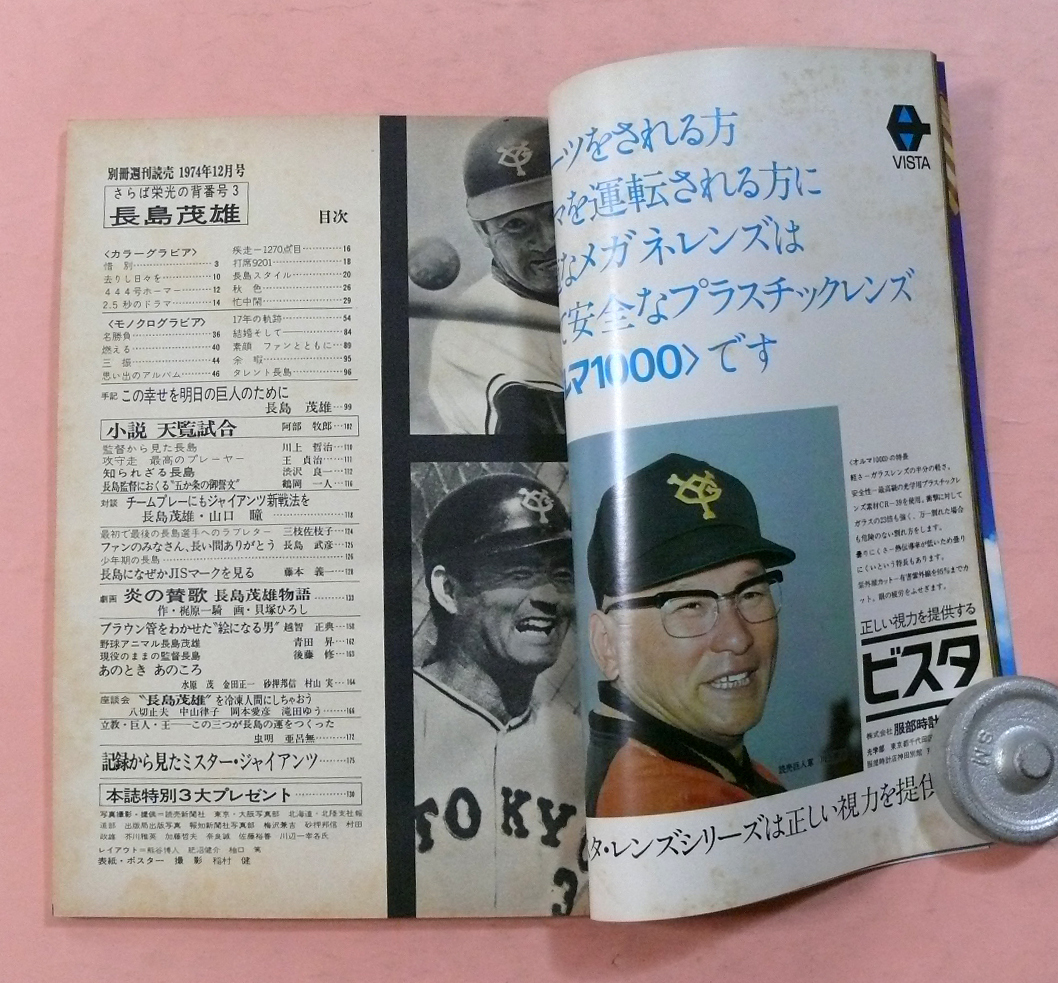 別冊週刊読売 1974年12月号
さらば栄光の背番号3
長島茂雄
目次
〈カラーグラビア〉
惜別 3
去りし日々を 10
444号ホーマー 12
2.5秒のドラマ 14
疾走−1270点目 16
打席9201 18
長島スタイル 20
秋色 26
忙中閑 29
〈モノクログラビア〉
名勝負 36
燃える 40
三振 44
思い出のアルバム 46
17年の軌跡 54
結婚そして 84
素顔 ファンとともに 89
余暇 95
タレント長島 96
手記 この幸せを明日の巨人のために
長島 茂雄 99
小説 天覧試合 阿部 牧郎 102
監督から見た長島 川上 哲治 110
攻守走 最高のプレーヤー 王 貞治 111
知られざる長島 渋沢 良一 112
長島監督におくる“五か条の御誓文” 鶴岡 一人 116
対談 チームプレーにもジャイアンツ新戦法を
長島茂雄・山口 瞳 118
最初で最後の長島選手へのラブレター 三枝佐枝子 124
ファンのみなさん、長い間ありがとう 長島 武彦 125
少年期の長島 126
長島になぜかJISマークを見る 藤本 義一 128
劇画 炎の賛歌 長島茂雄物語 133
作・梶原一騎 画・貝塚ひろし
ブラウン管をわかせた“絵になる男” 越智 正典 158
野球アニマル長島茂雄 青田 昇 162
現役のままの監督長島 後藤 修 163
あのとき あのころ
水原 茂 金田正一 砂押邦信 村山 実 164
座談会 “長島茂雄”を冷凍人間にしちゃおう
八切止夫 中山律子 岡本愛彦 滝田ゆう 166
立教・巨人・王――この三つが長島の運をつくった
虫明 亜呂無 172
記録から見たミスター・ジャイアンツ 175
本誌特別3大プレゼント 130
写真撮影・提供＝読売新聞社 東京・大阪写真部 北海道・北陸支社報
道部 出版局出版写真 報知新聞社写真部 梅沢兼吉 砂押邦信 村田
政雄 芥川雅英 加藤哲夫 奈良誠 佐藤裕春 川辺一幸各氏
レイアウト＝熊谷博人 肥沼健介 柚口 篤
表紙・ポスター 撮影 稲村 健
TOKY
3
VISTA
ーツをされる方
マを運転される方に
なメガネレンズは
安全なプラスチックレンズ
ルマ1000〉です
〈オルマ1000〉の特長
軽さ−ガラスレンズの半分の軽さ。
安全性−最高級の光学用プラスチックレ
ンズ素材CR−39を使用。衝撃に対して
ガラスの23倍も強く、万一割れた場合
も危険のない割れ方をします。
曇りにくさ−熱伝導率が低いため曇り
にくいという特長もあります。
紫外線カット−有害紫外線を95％までカ
ット。眼の疲労をふせぎます。
正しい視力を提供する
ビスタ
株式会社 服部時計
光学部 東京都千代田区
服部時計店神田別館
読売巨人軍
タ・レンズシリーズは正しい視力を提供
SM